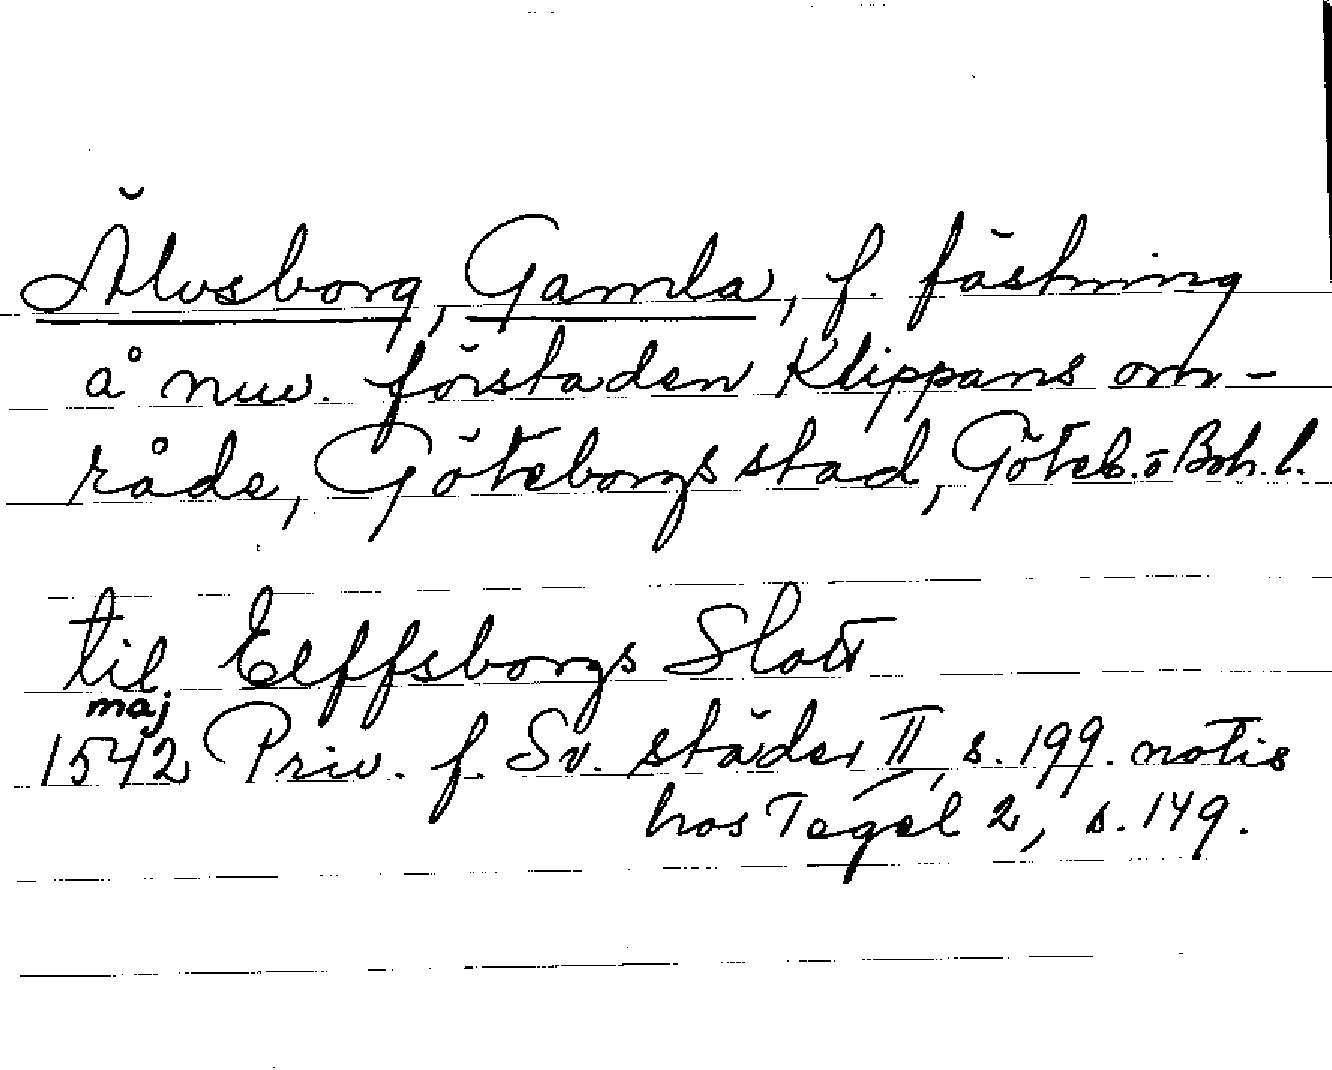 Älvsborg, Gamla, f. fästning
å nuv. förstaden Klippans om-
råde, Göteborgs stad, Göteb. o Boh. l.
til Elffsborgs Slott
maj
1542 Priv. f. Sv. städer II, s. 199. notis
hos Tegel 2, s. 149.